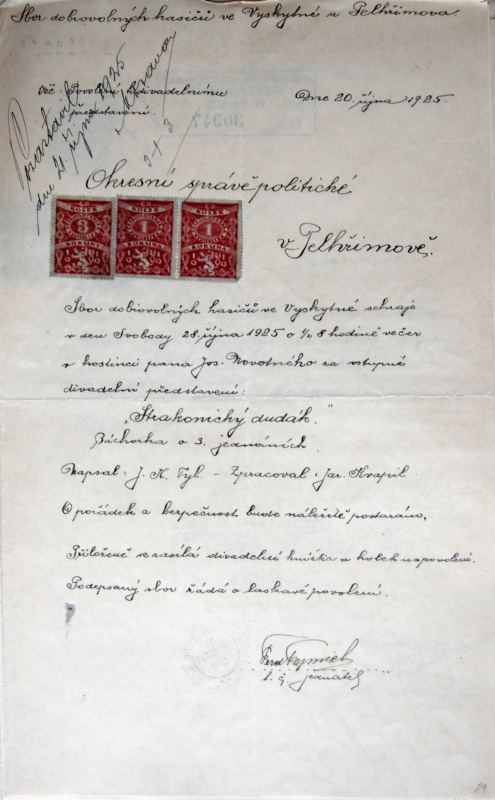 Sbor dobrovolných hasičů ve Vyskytné u Pelhřimova.
Věc: Povolení k divadelnímu
představení.
Dne 20. října 1925.
dne 21. října 1925
3+3
Okresní správě politické
v Pelhřimově.
KOLEK
3
KORUNA
KOLEK
1
KORUNA
KOLEK
1
KORUNA
Sbor dobrovolných hasičů ve Vyskytné sehraje
v den Svobody 28. října 1925 o ½ 8 hodině večer
v hostinci pana Jos. Novotného za vstupné
divadelní představení:
„Strakonický dudák."
Báchorka o 3. jednáních.
Napsal: J. K. Tyl. – Zpracoval: Jar. Kvapil.
O pořádek a bezpečnost bude náležitě postaráno.
Přiloženě se zasílá divadelní knížka a kolek na povolení.
Podepsaný sbor žádá o laskavé povolení.
t. č. jednatel